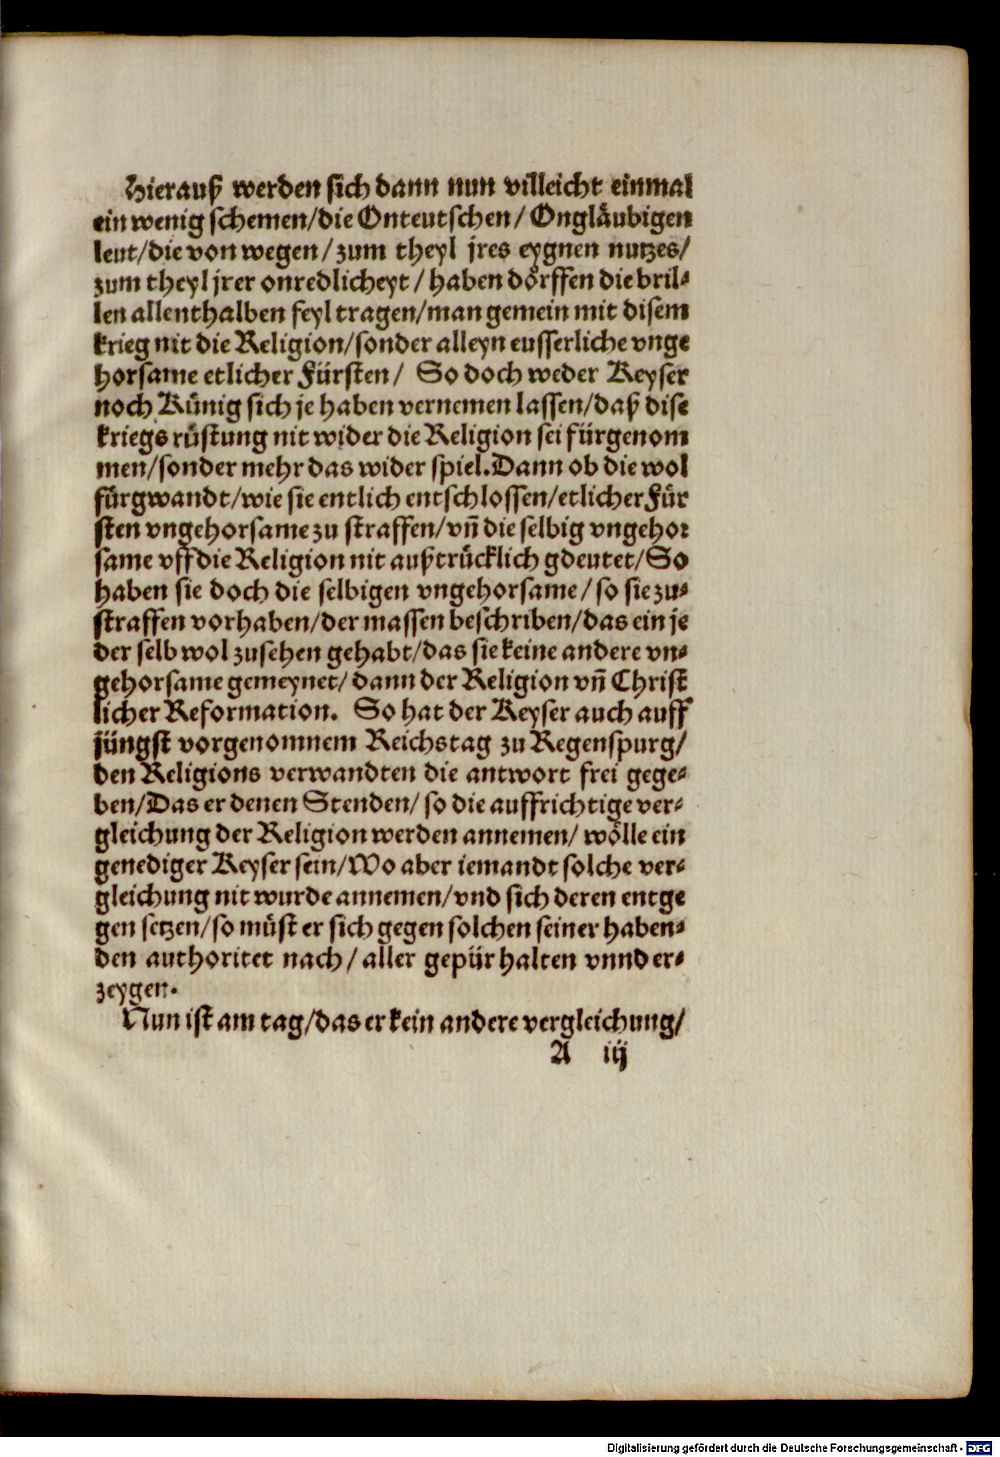 Hierauß werden sich dann nun villeicht einmal
ein wenig schemen/die Onteutschen/ Ongläubigen
leut/die von wegen/zum theyl jres eygnen nutzes/
zum theyl jrer onredlicheyt/ haben dörffen die bril⸗
len allenthalben feyl tragen/man gemein mit disem
krieg nit die Religion/sonder alleyn eusserliche vnge
horsame etlicher Fürsten/ So doch weder Keyser
noch Künig sich je haben vernemen lassen/daß dise
kriegs rüstung nit wider die Religion sei fürgenom
men/sonder mehr das wider spiel.Dann ob die wol
fürgwandt/wie sie entlich entschlossen/etlicher Für
sten vngehorsame zu straffen/vñ die selbig vngehor
same vff die Religion nit außtrücklich gdeutet/So
haben sie doch die selbigen vngehorsame/ so sie zu⸗
straffen vorhaben/der massen beschriben/das ein je
der selb wol zusehen gehabt/das sie keine andere vn⸗
gehorsame gemeynet/ dann der Religion vñ Christ
licher Reformation. So hat der Keyser auch auff
jüngst vorgenomnem Reichstag zu Regenspurg/
den Religions verwandten die antwort frei gege⸗
ben/Das er denen Stenden/ so die auffrichtige ver⸗
gleichung der Religion werden annemen/ wölle ein
genediger Keyser sein/Wo aber iemandt solche ver⸗
gleichung nit wurde annemen/vnd sich deren entge
gen setzen/so müst er sich gegen solchen seiner haben⸗
den authoritet nach/ aller gepür halten vnnd er⸗
zeygen.
Nun ist am tag/das er kein andere vergleichung/
A iij
Digitalisierung gefördert durch die Deutsche Forschungsgemeinschaft - DFG